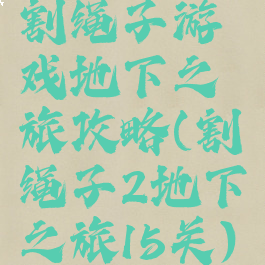 割绳子游
戏地下之
旅攻略(割
绳子2地下
之旅15关)